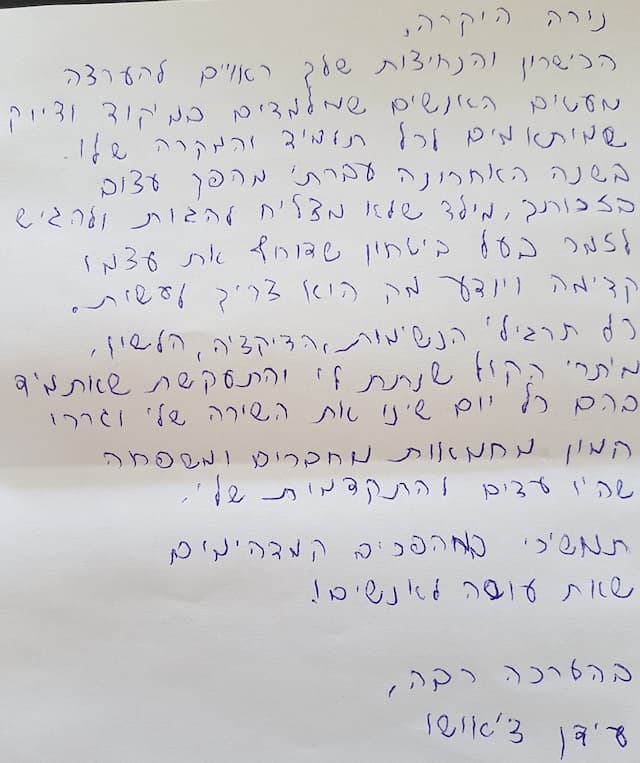 נירה היקרה,
הכישרון והנחיצות שלך ראויים להערצה
מעטים האנשים שמלמדים במיקוד ודיוק
שמותאמים לכל תלמיד והמקרה שלו.
בשנה האחרונה עברתי מהפך עצום
בזכותך, מילד שלא מצליח להגות ולהגיש
לזמר בעל ביטחון שדוחף את עצמו
קדימה ויודע מה הוא צריך לעשות.
כל תרגילי הנשימות, הדיקציה, הלשון,
מיתרי הקול שנתת לי והתעקשת שאתמיד
בהם כל יום שינו את השירה שלי וגררו
המון מחמאות מחברים ומשפחה
שהיו עדים להתקדמות שלי.
תמשיכי במהפכים המדהימים
שאת עושה לאנשים!
בהערכה רבה,
עידן